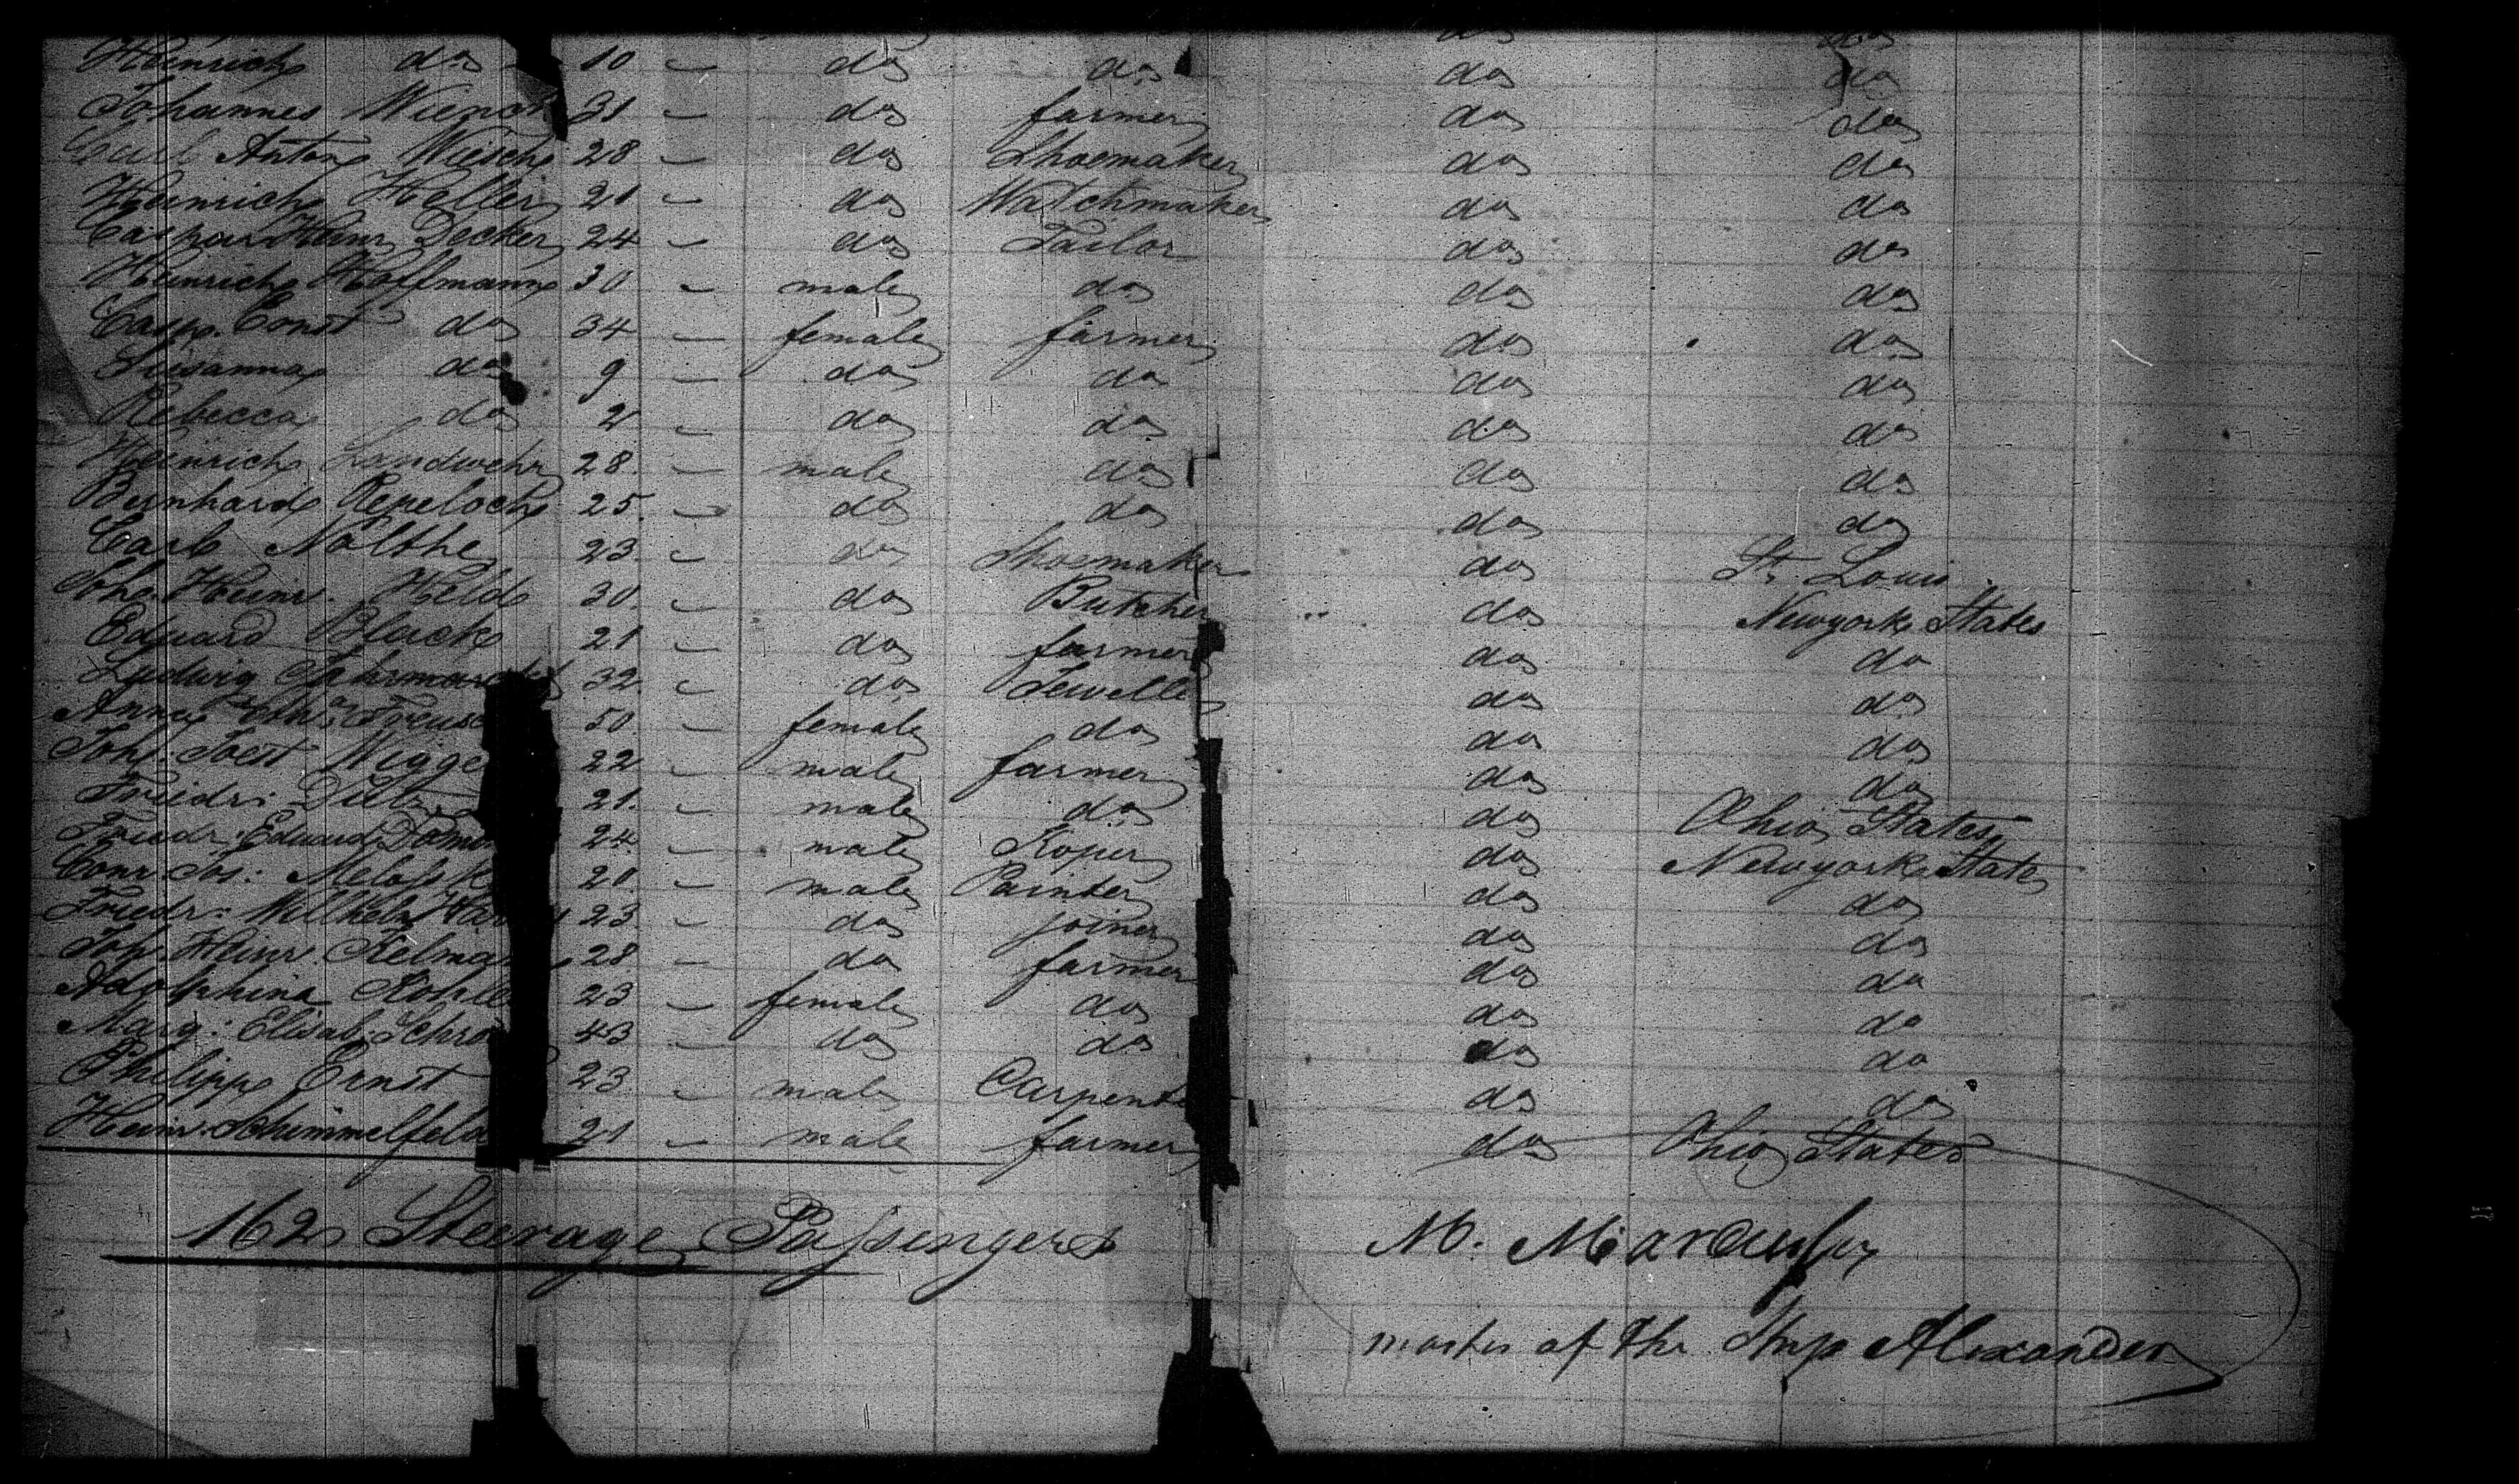 do do
Heinrich do 10 – do do do do
Johannes 31 – do farmer do do
Carl Anton Wiesch 28 – do Shoemaker do do
Heinrich Heller 21 – do Watchmaker do do
Caspar Heinr Decker 24 – do Tailor do do
Heinrich Hoffmann 30 – male do do do
Casp. Ernst do 34 – female farmer do do
Susanna do 9 – do do do do
Rebecca do 2 – do do do do
Heinrich Landwehr 28 – male do do do
Bernhard Repeloch 25 – do do do do
Carl Nolthe 23 – do Shoemaker do St. Louis
Joh. Heinr. Held 30 – do Butcher do Newyork States
Eduard Black 21 – do farmer do do
Ludwig 32 – do Jewelle do do
Anna 50 – female do do do
Joh. Jost Nigge 22 – male farmer do do
Friedr: Dietz 21 – male do do Ohio States
Friedr: Eduard 24 – male Roper do Newyork State
Conr Jos: 20 – male Painter do do
Friedr: Wilhelm 23 – do joiner do do
Joh. Heinr. Helma 28 – do farmer do do
Adolphina 23 – female do do do
Marg: Elisab: Schrö 43 – do do do do
Philipp Ernst 23 – male Carpent do do
Heinr. Schimmelfeld 21 – male farmer do Ohio States
162 Steerage Passengers
M.
master of the Ship Alexander